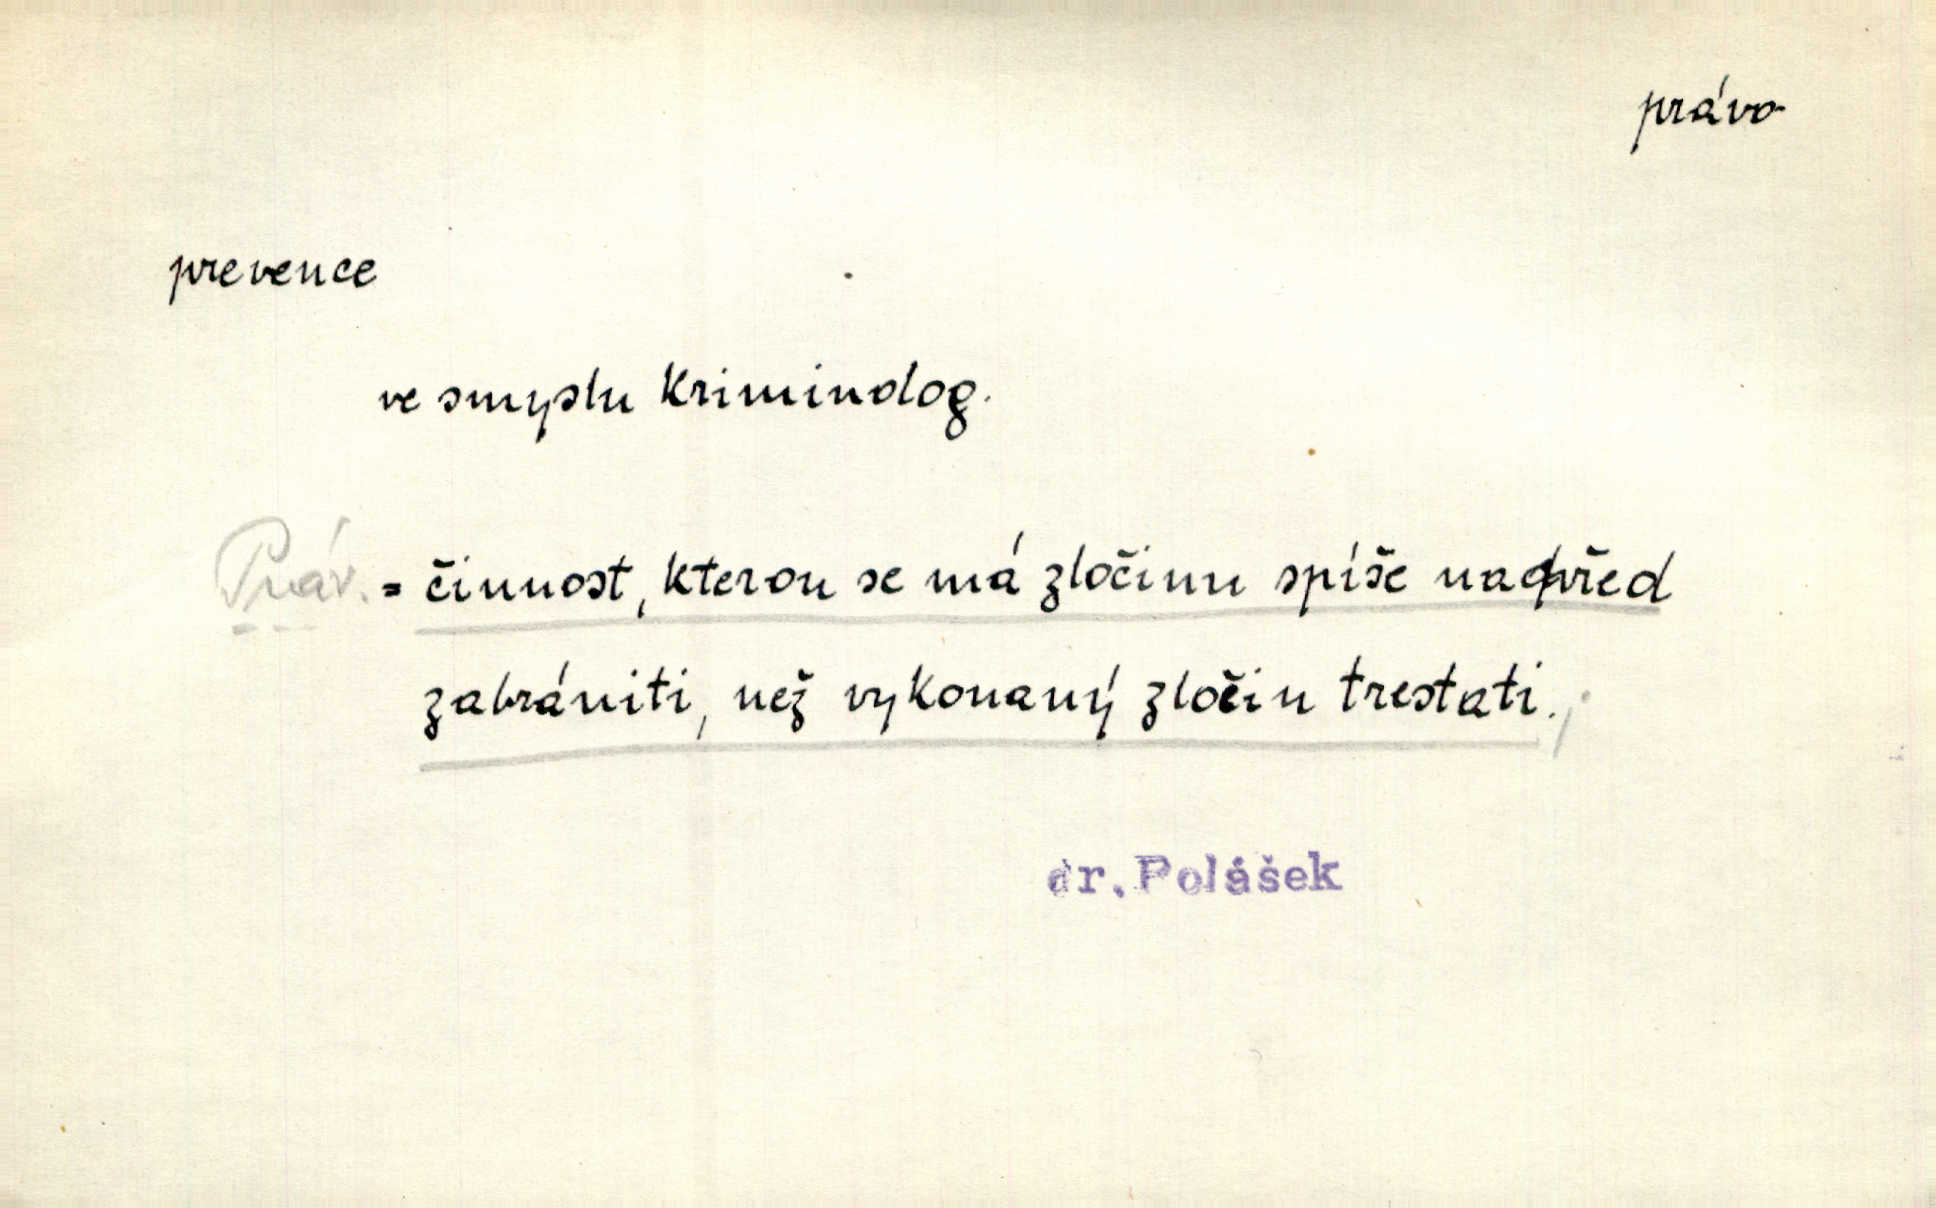 právo
prevence
ve smyslu kriminolog.
Práv. = činnost, kterou se má zločinu spíše napřed
zabrániti, než vykonaný zločin trestati.;
dr. Polášek